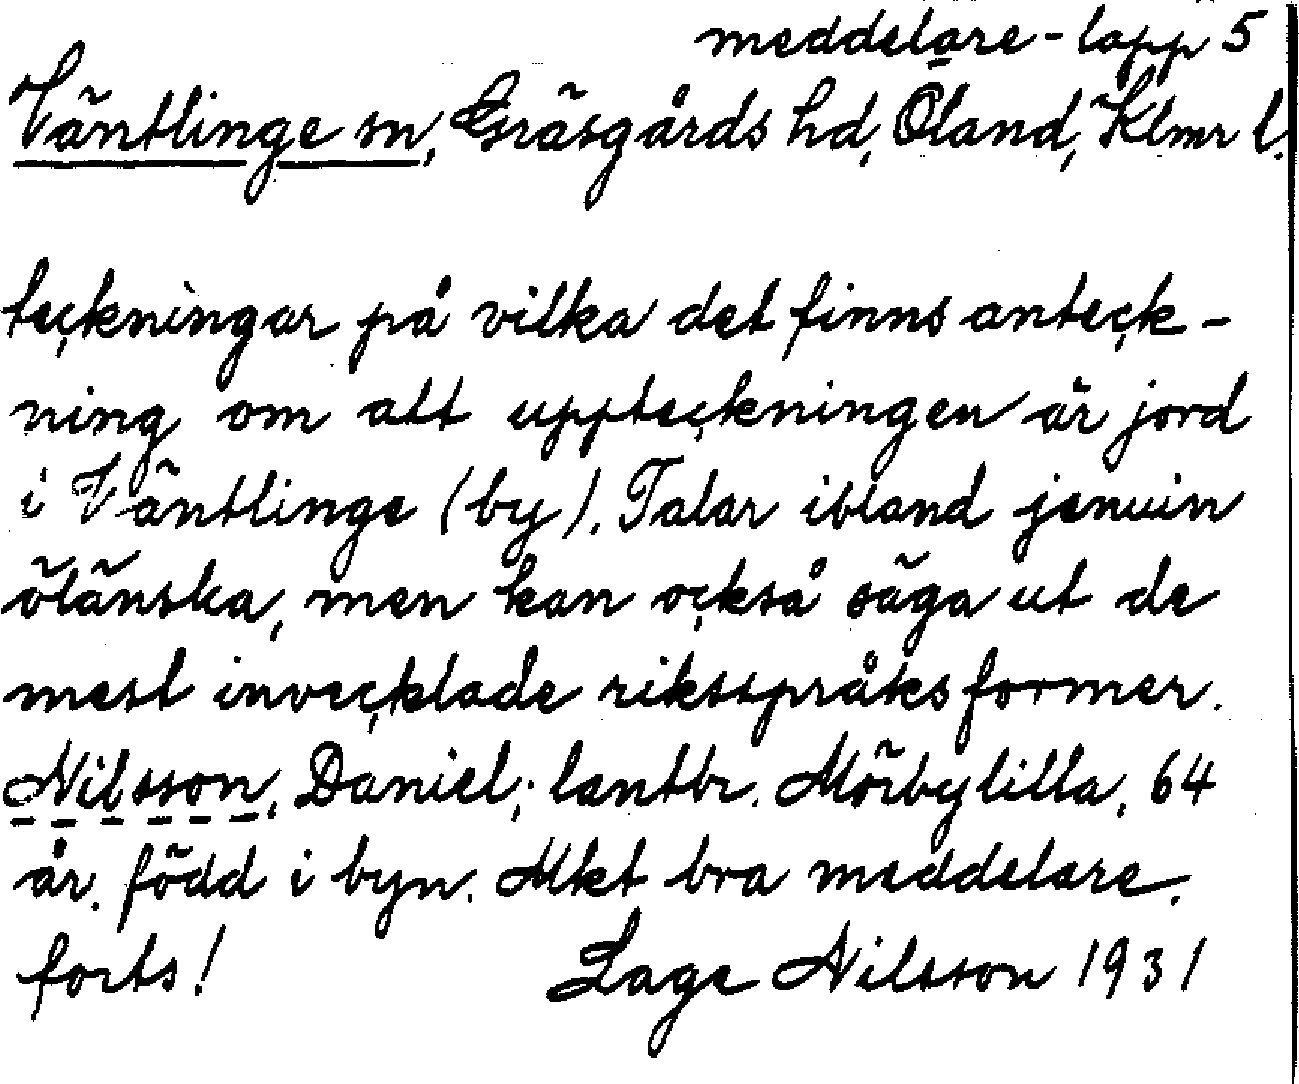 meddelare - lapp 5
Väntlinge sn, Gräsgårds hd, Öland, Klmr l.
teckningar på vilka det finns anteck-
ning om att uppteckningen är jord
i Väntlinge (by). Talar ibland jenuin
öländska, men kan också säga ut de
mest invecklade riksspråksformer.
Nilsson, Daniel, lantbr. Mörbylilla, 64
år. född i byn. Mkt bra meddelare.
forts! Lage Nilsson 1931